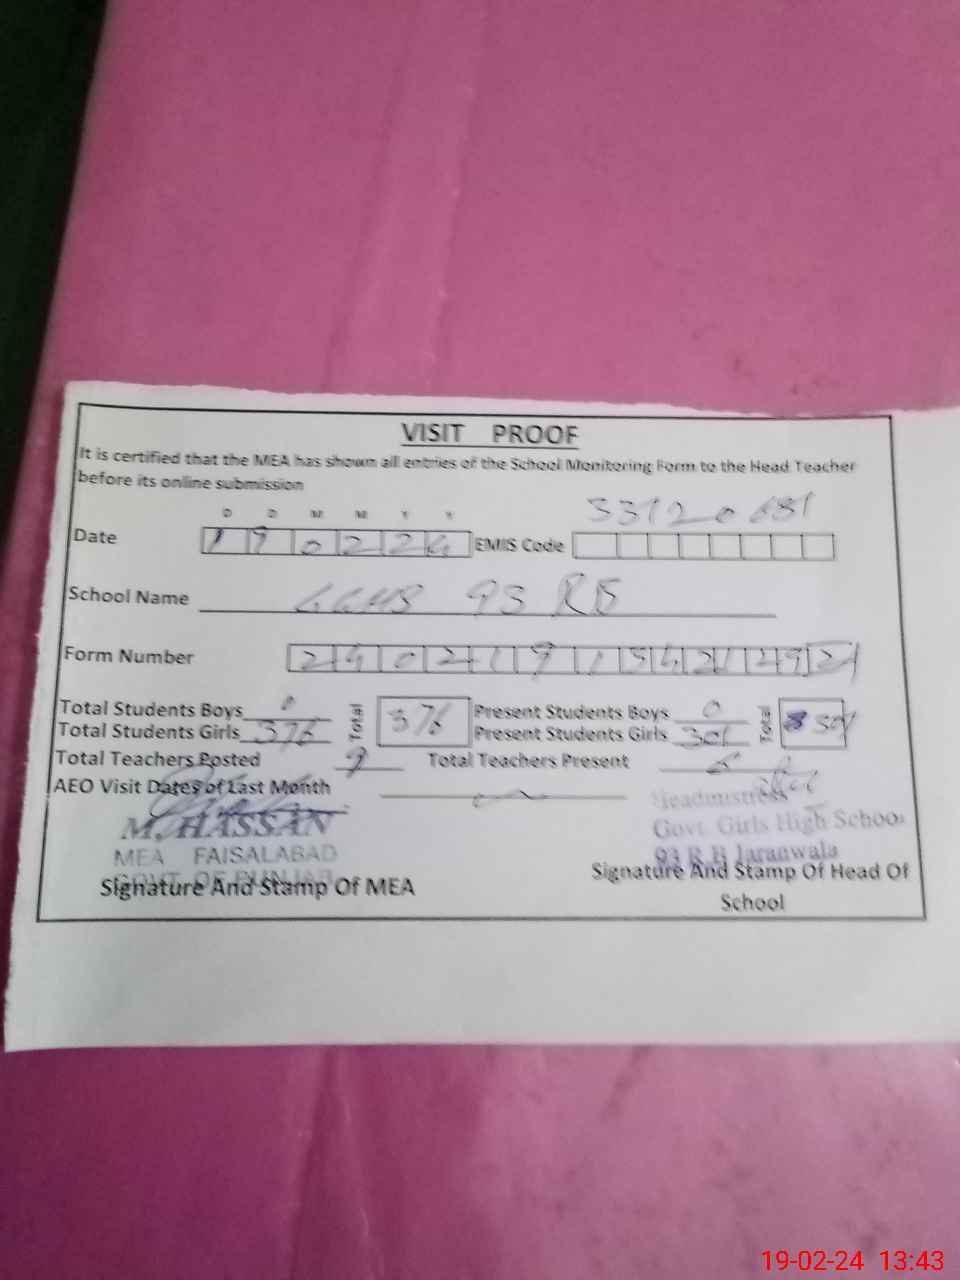 VISIT PROOF
It is certified that the MEA has shown all entries of the School Monitoring Form to the Head Teacher
before its online submission
D D M M Y Y
Date 190224 EMIS Code 33120681
School Name GGHS 93 RB
Form Number
Total Students Boys 0 Total 376 Present Students Boys 0 Total 301
Total Students Girls 376 Present Students Girls 301
Total Teachers Posted 9 Total Teachers Present
AEO Visit Dates of Last Month
M. HASSAN
MEA FAISALABAD
GOVT. OF PUNJAB
Signature And Stamp Of MEA
Headmistress
Govt. Girls High School
93 R.B Jaranwala
Signature And Stamp Of Head Of
School
19-02-24 13:43